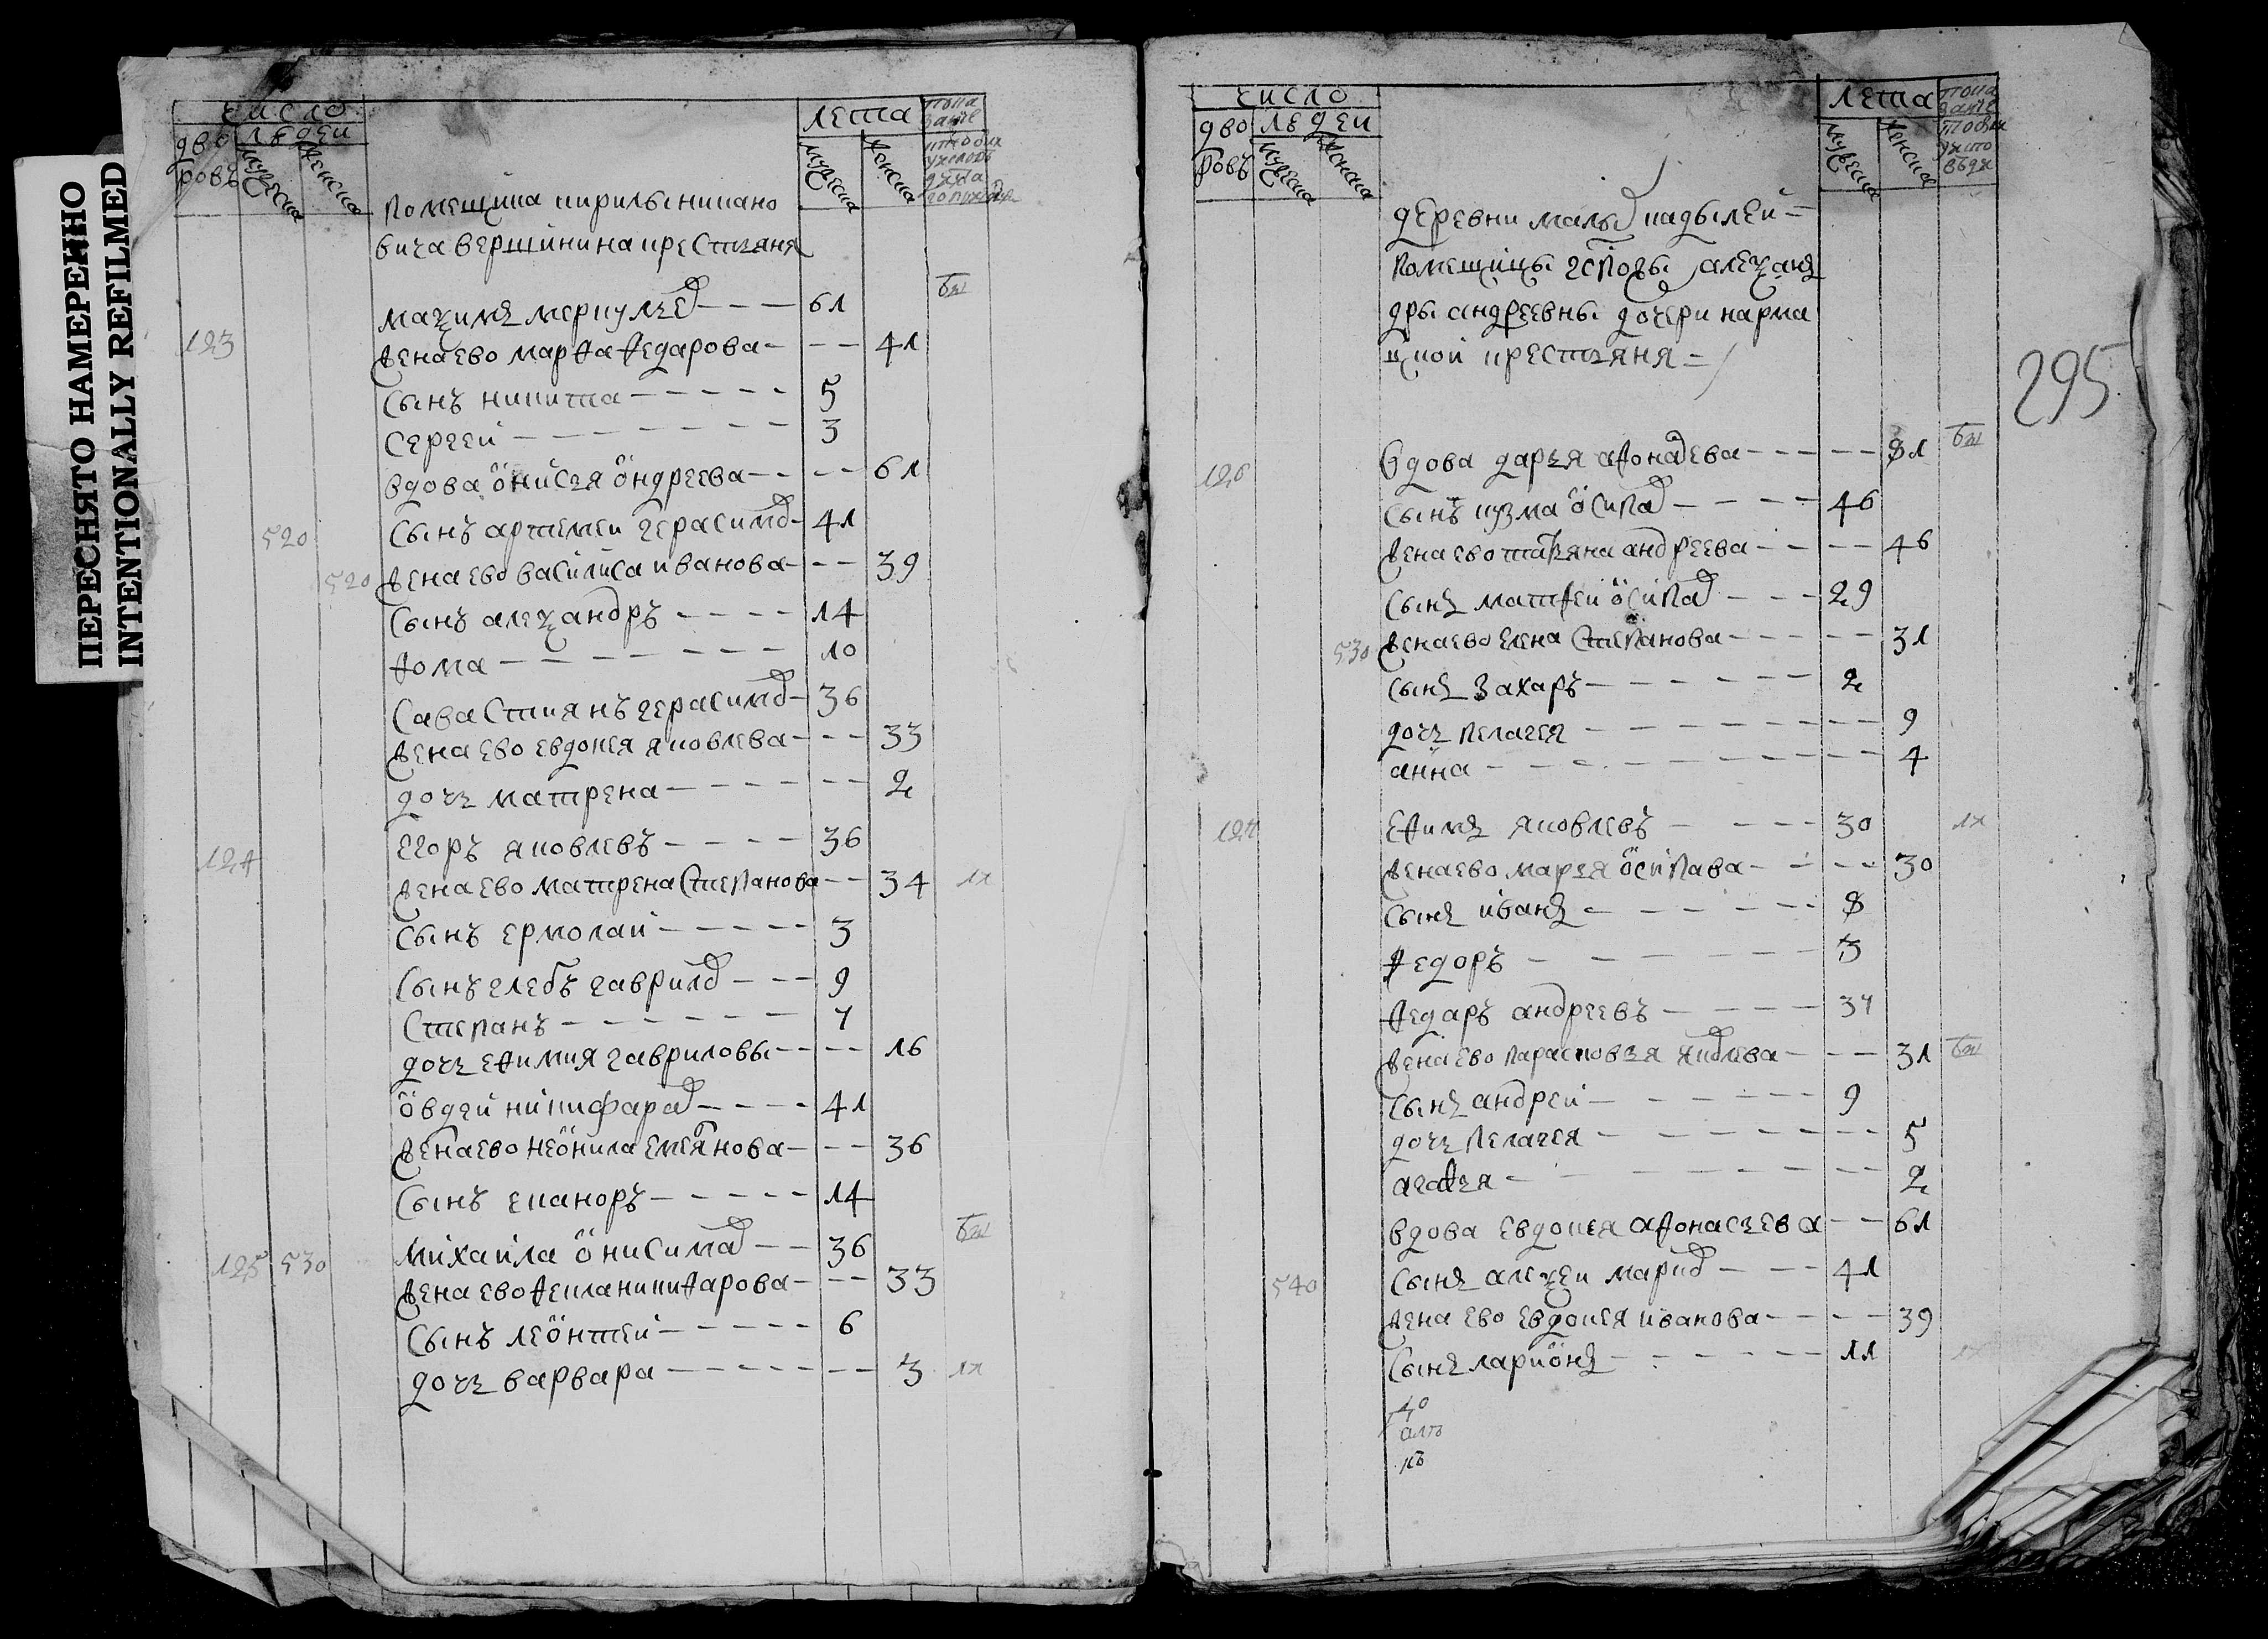 ПЕРЕСНЯТО НАМЕРЕННО
INTENTIONALLY REFILMED
число
дворовъ людеи
мужеска женска
лета
мужеска женска
помещика кирилы никано
вича вершинина крестьяня
123 максимъ меркулъев 61
жена ево марфа федарова 41
сынъ никита 5
сергеи 3
вдова онисья ондреева 61
520 сынъ артемеи герасимов 41
520 жена ево василиса иванова 39
сынъ александръ 14
фома 10
савастиянъ герасимов 36
жена ево евдокея яковлева 33
дочь матрена 2
124 егоръ яковлевъ 36
жена ево матрена степанова 34
сынъ ермолаи 3
сынъ глебъ гаврилов 9
степанъ 7
дочь ефимия гавриловы 16
овдеи никифаров 41
жена ево неонила емелянова 36
сынъ еканоръ 14
125 530 михаила онисимов 36
жена ево фекла никифарова 33
сынъ леонтеи 6
дочь варвара 3
число
дворовъ людеи
мужеска женска
лета
мужеска женска
295
деревни малых кадылеи
помещицы госпожи алексан
дры андреевны дочери нарма
цкой крестьяня
126 вдова дарья афонасева 81
сынъ кузма осипав 46
жена ево татьяна андреева 46
сынъ матфеи осипав 29
530 жена ево елена степанова 31
сынъ захаръ 2
дочь пелагея 9
анна 4
127 ефимъ яковлевъ 30
жена ево марья осипава 30
сынъ иванъ 8
федоръ 3
федаръ андреевъ 34
жена ево парасковья яковлева 31
сынъ андреи 9
дочь пелагея 5
агафья 2
вдова евдокея афонасьева 61
540 сынъ алексеи марков 41
жена ево евдокея иванова 39
сынъ ларионъ 11